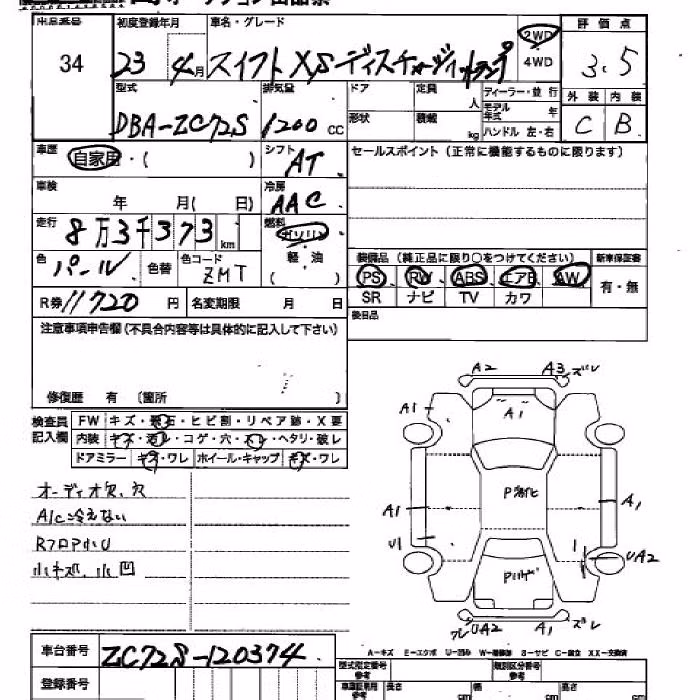 出品番号 初度登録年月 車名・グレード 評価点
34 23年4月 スイフト XS ディスチャージヘッドランプ 2WD 4WD 3.5
型式 排気量 ドア 定員 人 ディーラー・並行 外装 内装
DBA-ZC72S 1200 cc 形状 積載 kg モデル年式 年 ハンドル 左・右 C B
車歴 自家用・( ) シフト AT セールスポイント(正常に機能するものに限ります)
車検 年 月( 日) 冷房 AAC
走行 8万3千373 km 燃料 ガソリン 軽・油
色 パール 色替 色コード ZMT
装備品(純正品に限り○をつけてください) 新車保証書
PS RW ABS エアB AW 有・無
SR ナビ TV カワ
R券 11720 円 名変期限 月 日 後日品
注意事項申告欄(不具合内容等は具体的に記入して下さい)
修復歴 有 〔箇所 〕
検査員記入欄 FW キズ・飛石・ヒビ割・リペア跡・X要
内装 キズ・汚レ・コゲ・穴・スレ・ヘタリ・破レ
ドアミラー キズ・ワレ ホイール・キャップ キズ・ワレ
オーディオ欠、穴
A/C冷えない
RフロアサU
小キズ、小凹
A2 A3 ズレ
A1 A1
P劣化
A1 A1
U1 UA2
ズレ UA2 A1 ズレ
A-キズ E-エクボ U-凹み W-補修跡 S-サビ C-腐食 XX-交換済
車台番号 ZC72S-120374
型式指定番号 参考 類別区分番号 参考
登録番号
長さ cm 幅 cm 高さ cm